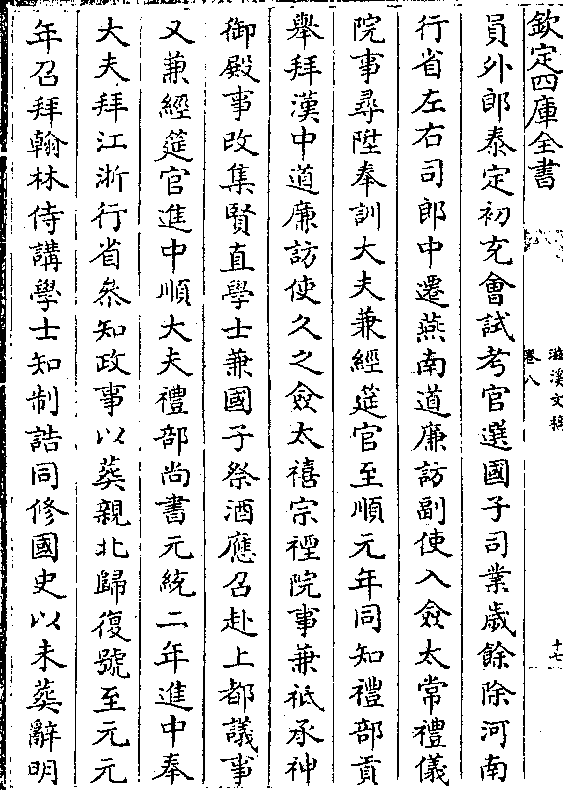 欽定四庫全書
滋溪文稿
卷八
十七
員外郎泰定初充會試考官選國子司業歲餘除河南
行省左右司郎中遷燕南道廉訪副使入僉太常禮儀
院事尋陞奉訓大夫兼經筵官至順元年同知禮部貢
舉拜漢中道廉訪使久之僉太禧宗禋院事兼祗承神
御殿事改集賢直學士兼國子祭酒應召赴上都議事
又兼經筵官進中順大夫禮部尚書元統二年進中奉
大夫拜江浙行省叅知政事以葬親北歸復號至元元
年召拜翰林侍講學士知制誥同修國史以未葬辭明